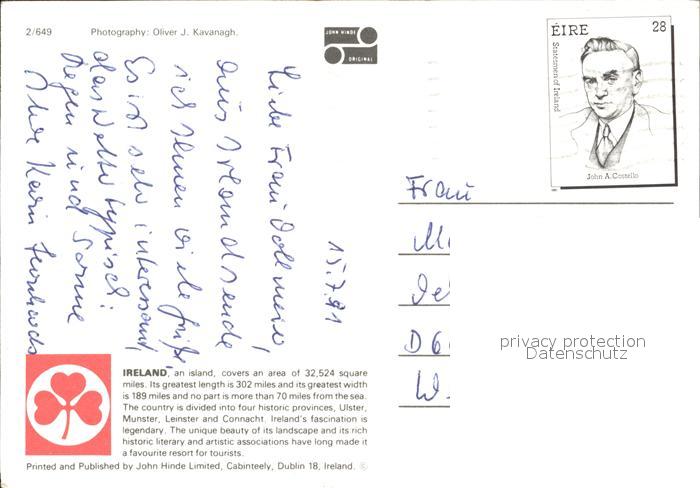 2/649 Photography: Oliver J. Kavanagh.
JOHN HINDE
ORIGINAL
ÉIRE 28
Statesmen of Ireland
John A. Costello
15.7.91
Liebe Frau
aus Irland sende
ich Ihnen viele Grüße!
Es ist sehr interessant,
das Wetter typisch:
Regen und Sonne
Ihre Karin
Frau
M
De
D6
W.
privacy protection
Datenschutz
IRELAND, an island, covers an area of 32,524 square
miles. Its greatest length is 302 miles and its greatest width
is 189 miles and no part is more than 70 miles from the sea.
The country is divided into four historic provinces, Ulster,
Munster, Leinster and Connacht. Ireland's fascination is
legendary. The unique beauty of its landscape and its rich
historic literary and artistic associations have long made it
a favourite resort for tourists.
Printed and Published by John Hinde Limited, Cabinteely, Dublin 18, Ireland. ©